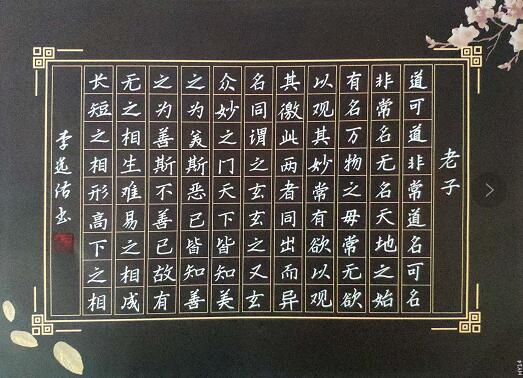 老子
道可道非常道名可名
非常名无名天地之始
有名万物之母常无欲
以观其妙常有欲以观
其徼此两者同出而异
名同谓之玄玄之又玄
众妙之门天下皆知美
之为美斯恶已皆知善
之为善斯不善已故有
无之相生难易之相成
长短之相形高下之相
李书